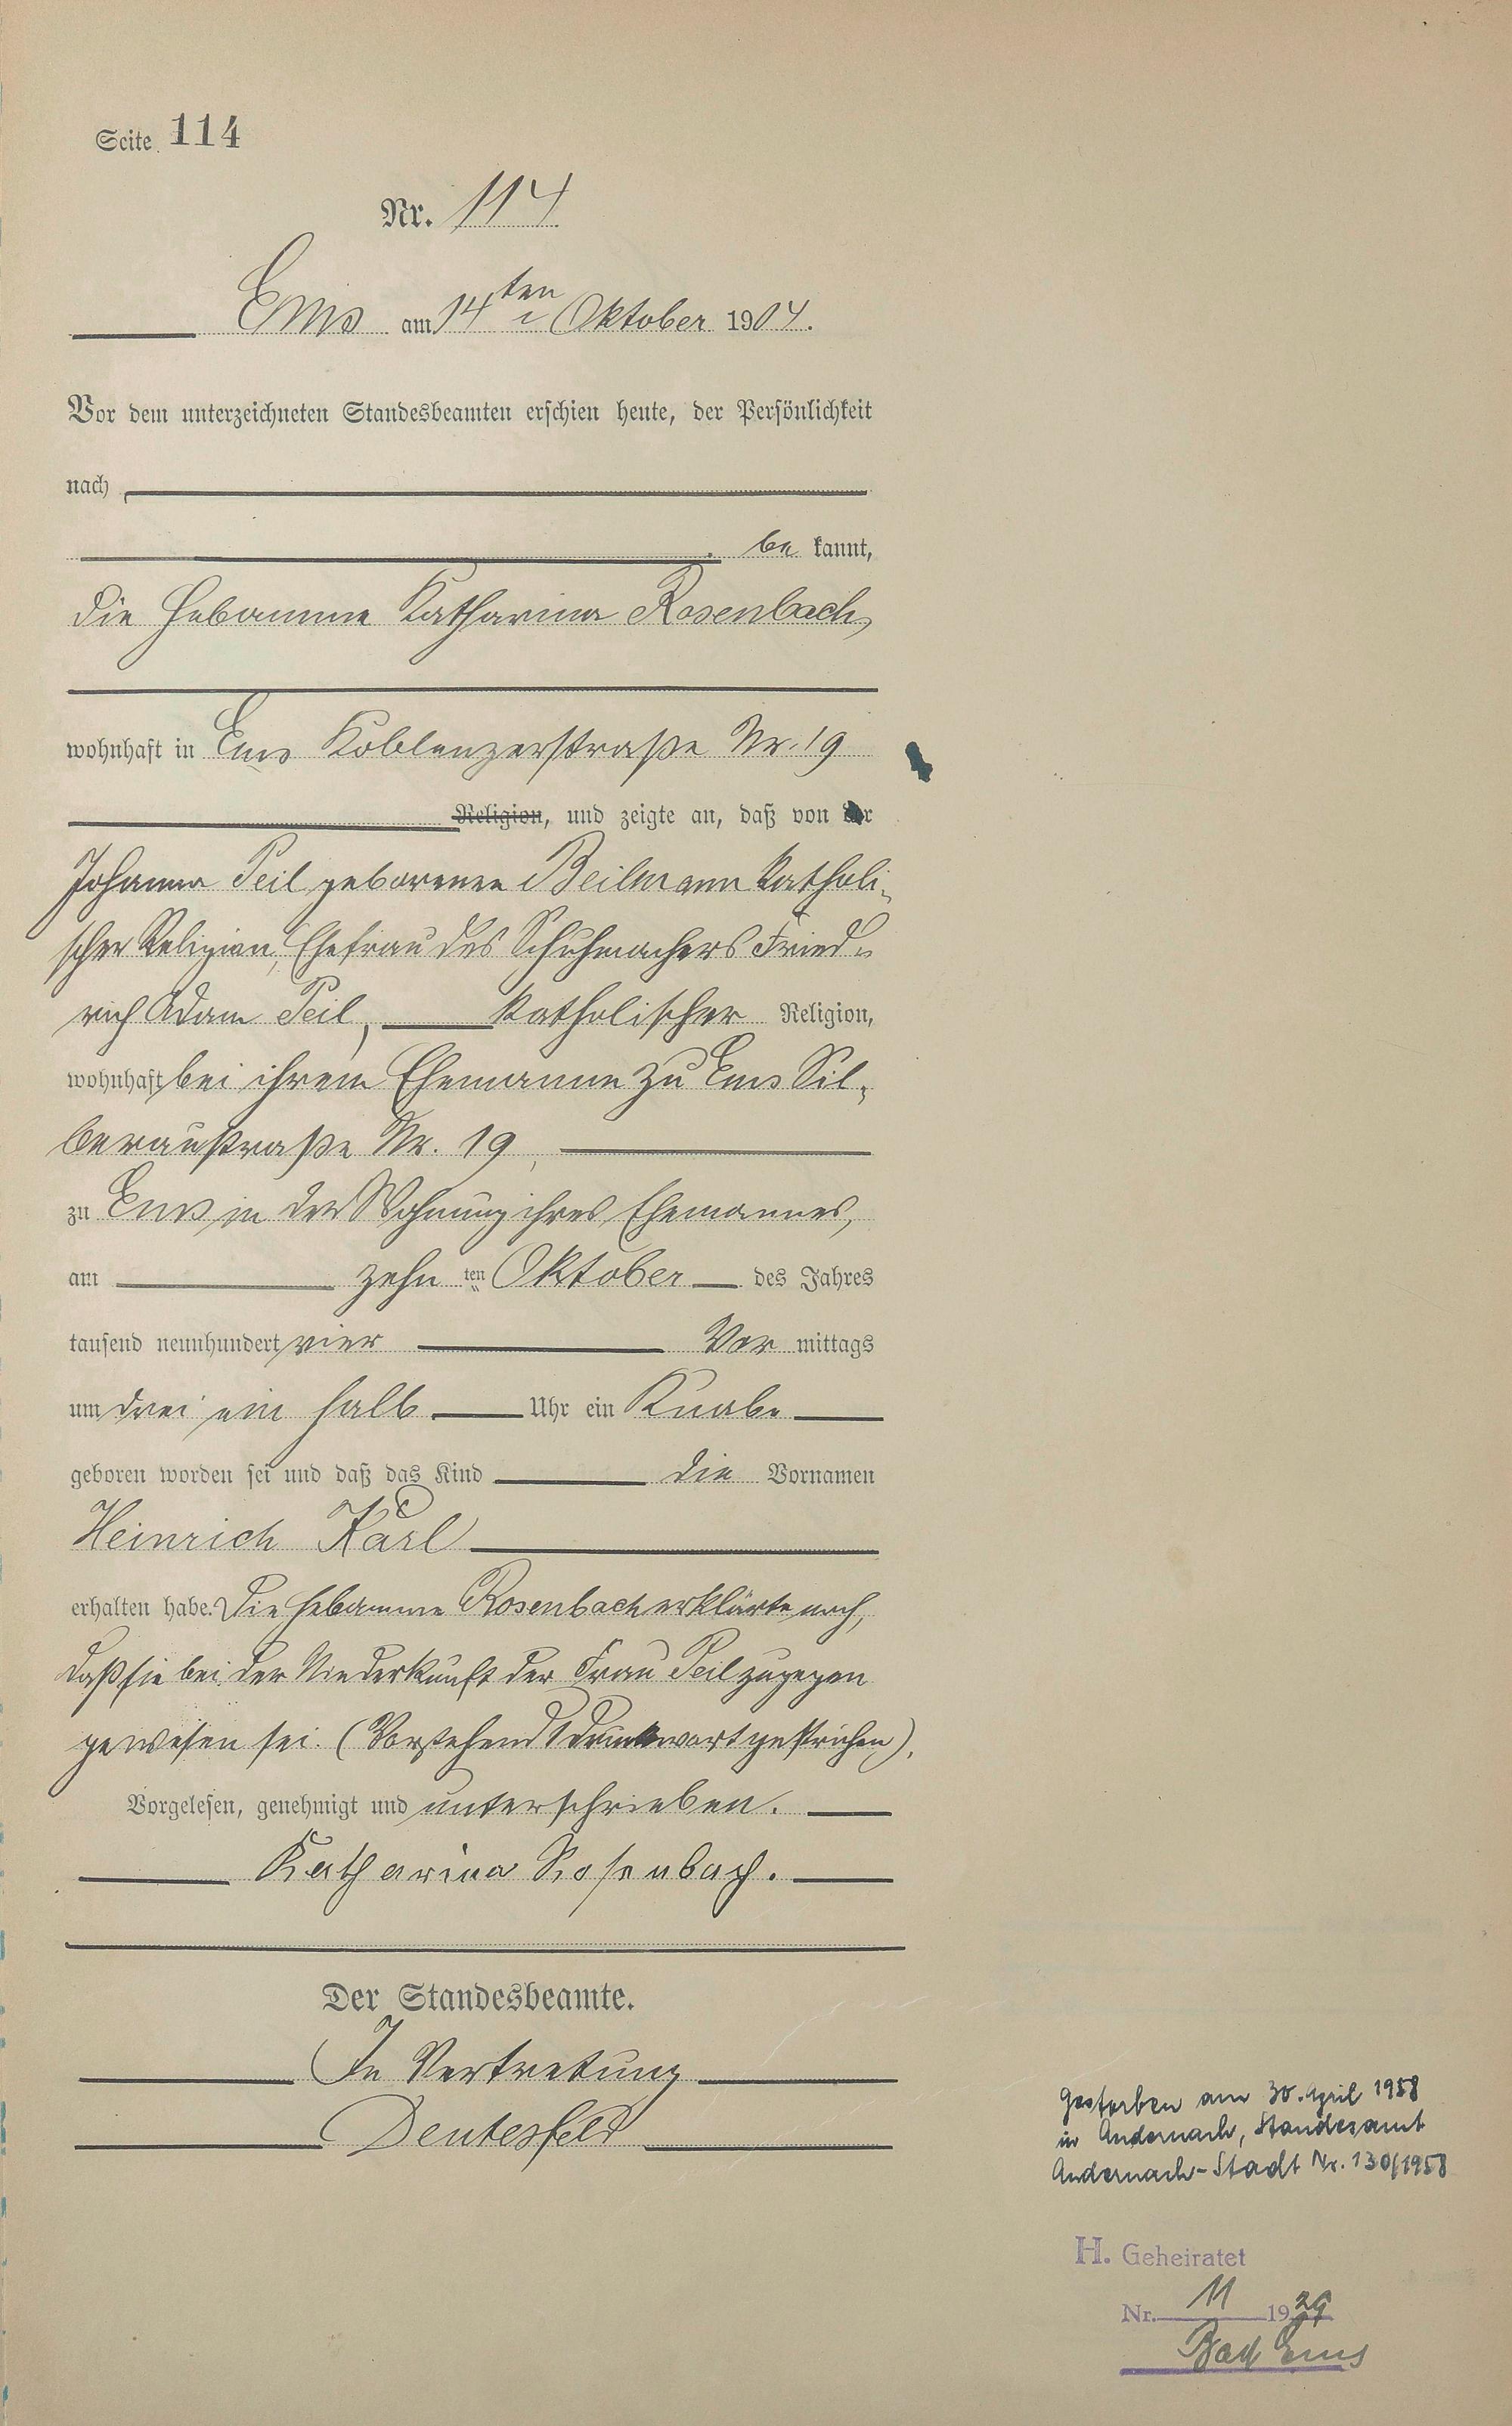 Seite 114
Nr. 114
Ems am 14ten Oktober 1904.
Vor dem unterzeichneten Standesbeamten erschien heute, der Persönlichkeit
nach
be kannt,
die Hebamme Katharina Rosenbach,
wohnhaft in Ems Koblenzerstraße Nr. 19
Religion, und zeigte an, daß von der
Johanna Peil geborenen Beilmann katholi-
scher Religion, Ehefrau des Schuhmachers Fried-
rich Adam Peil, katholischer Religion,
wohnhaft bei ihrem Ehemanne zu Ems Sil-
beraustraße Nr. 19,
zu Ems in der Wohnung ihres Ehemannes,
am zehn ten Oktober des Jahres
tausend neunhundert vier Vor mittags
um drei ein halb Uhr ein Knabe
geboren worden sei und daß das Kind die Vornamen
Heinrich Karl
erhalten habe. Die Hebamme Rosenbach erklärte noch,
daß sie bei der Niederkunft der Frau Peil zugegen
gewesen sei. (Vorstehend 1 Druckwort gestrichen).
Vorgelesen, genehmigt und unterschrieben.
Katharina Rosenbach.
Der Standesbeamte.
In Vertretung
Deutesfeld
Gestorben am 30. April 1958
in Andernach, Standesamt
Andernach-Stadt Nr. 130/1958
H. Geheiratet
Nr. 11 1929
Bad Ems